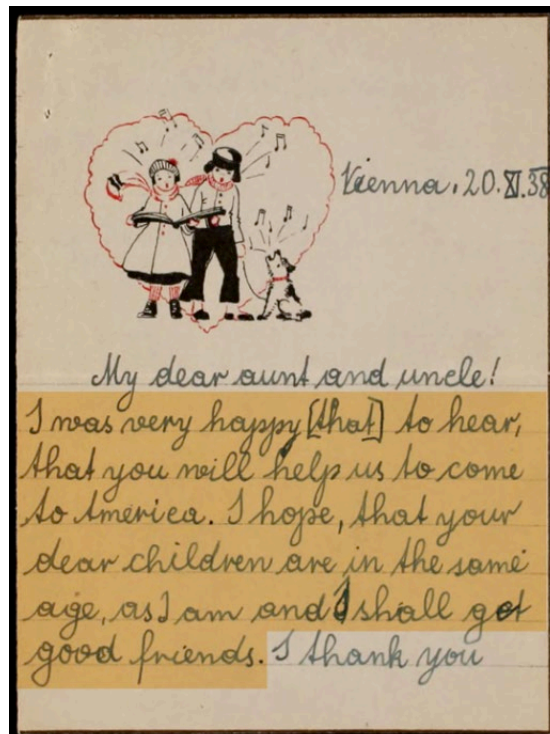 Vienna, 20. XI. 38
My dear aunt and uncle!
I was very happy [that] to hear,
that you will help us to come
to America. I hope, that your
dear children are in the same
age, as I am and I shall get
good friends. I thank you